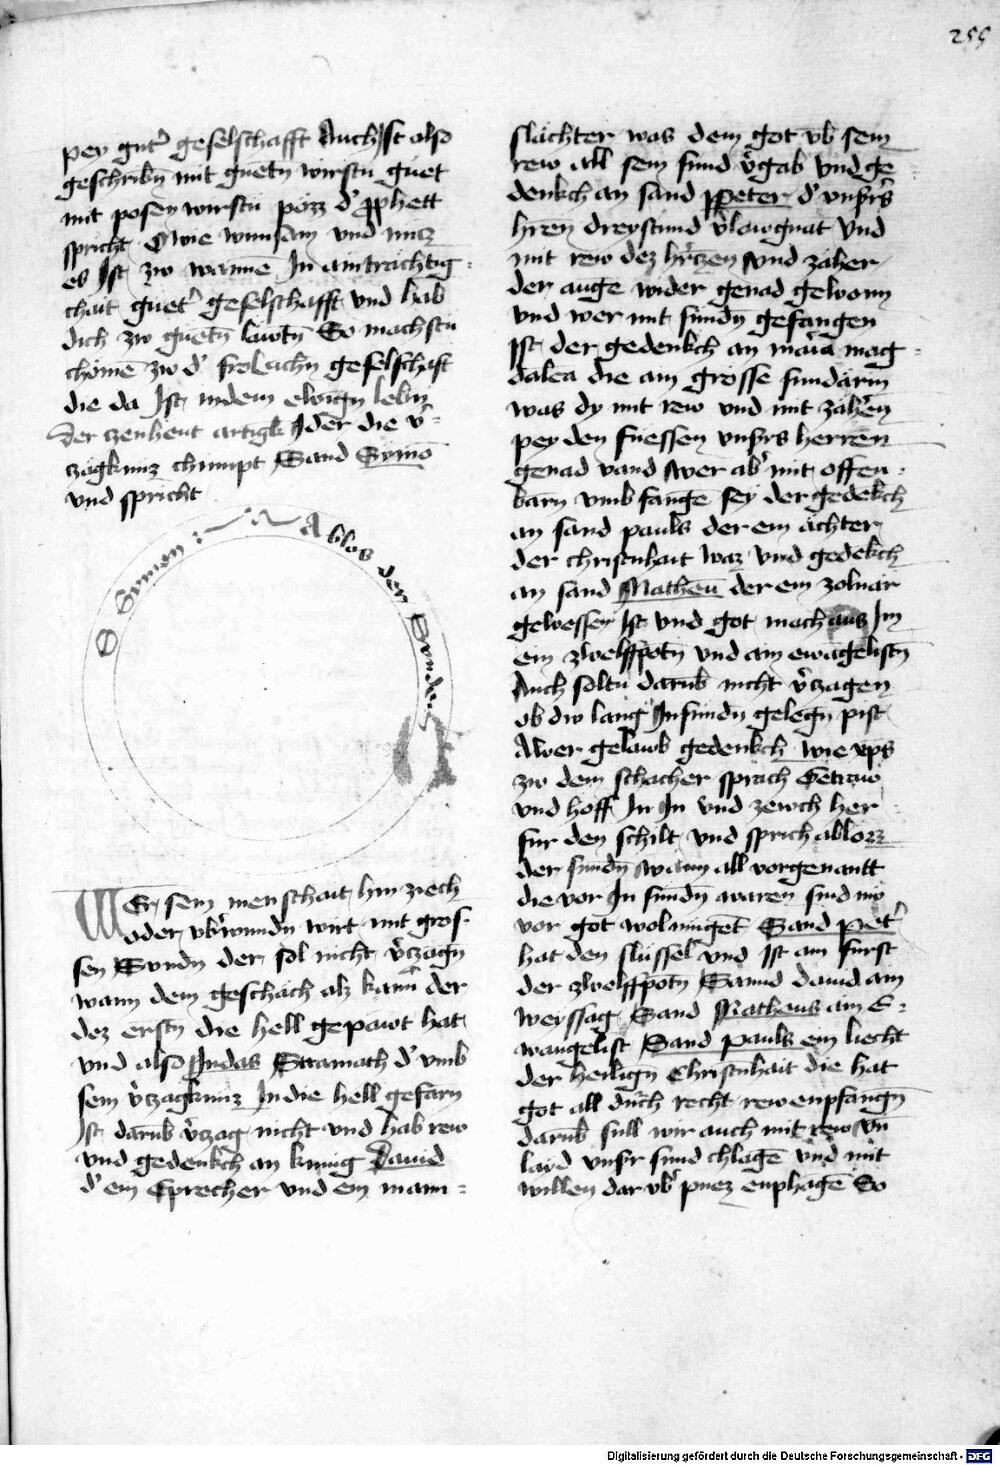 259
pey gut' geselschafft Auch Ist also
geschribn mit guetn wirstu guet
mit posen wirstu pözz d' pphett
spricht O wie wunsam und nutz
es Ist zw wanne In aintrachtig=
chait guet' geselschafft und hab
dich zw guetn lawtn So machstu
chöme zw d' frolichn geselschaft
die da Ist indem ewign lebn
der czenhent artigk Ider die v'=
zagknuz chumpt Sand Symō
und spricht
O Symon : Ablos der Sunden
WEr sein menschait hin ziech
oder vb'wundn wirt mit gros=
sen Sundn der sol nicht v'czagn
wann dem geschach alz kaim der
dez erstn die hell gepawt hat
und also Iudas Straioth d' umb
sein v'czagknuz In die hell gefarn
Ist darub v'czag nicht und hab rew
und gedenkch an kunig Dauid
d' ein Eprecher und ein mann=
slächter was dem got vb sein
rew all sein sund v'gab und ge
denkch an sand Peter d' unsrs
hren dreystund v'lawgnat und
mit rew dez hr'czen und zäher
der auge wider genad gewonn
und wer mit sundn gefangen
Ist der gedenkch an maria mag=
dalea die ain grosse sundärin
was dy mit rew und mit zähren
pey den fuessen unsrs herren
genad vand wer ab' mit offen=
barn umbfange sey der gedekch
an sand pauls der ein ächter
der christnhait waz und gedekch
an sand Matheu der ein zolnär
gewessen Ist und got mach aus Im
ein zwelffpotn und ain ewagelistn
Auch soltu darub nicht v'czagen
ob dw lang In sundn gelegn pist
Awer gelawb gedenkch wie xps
zw dem schacher sprach Getraw
und hoff In In und zewch her
fur den schilt und sprich ablozz
der sundn wann all vorgenantt
die vor In sundn waren sind nw
vor got wolmugent Sand Pet'
hat den slüssel und Ist ain furst
der zwelffpotn Sannd dauid ain
weyssag Sand Matheus ain E=
wangelist Sand pauls ein liecht
der heilign Christnhait die hat
got all durch recht rew enpfangn
darub sull wir auch mit rew un
layd unsr sund chlage und mit
willen dar vb' puez enphage So
Digitalisierung gefördert durch die Deutsche Forschungsgemeinschaft - DFG